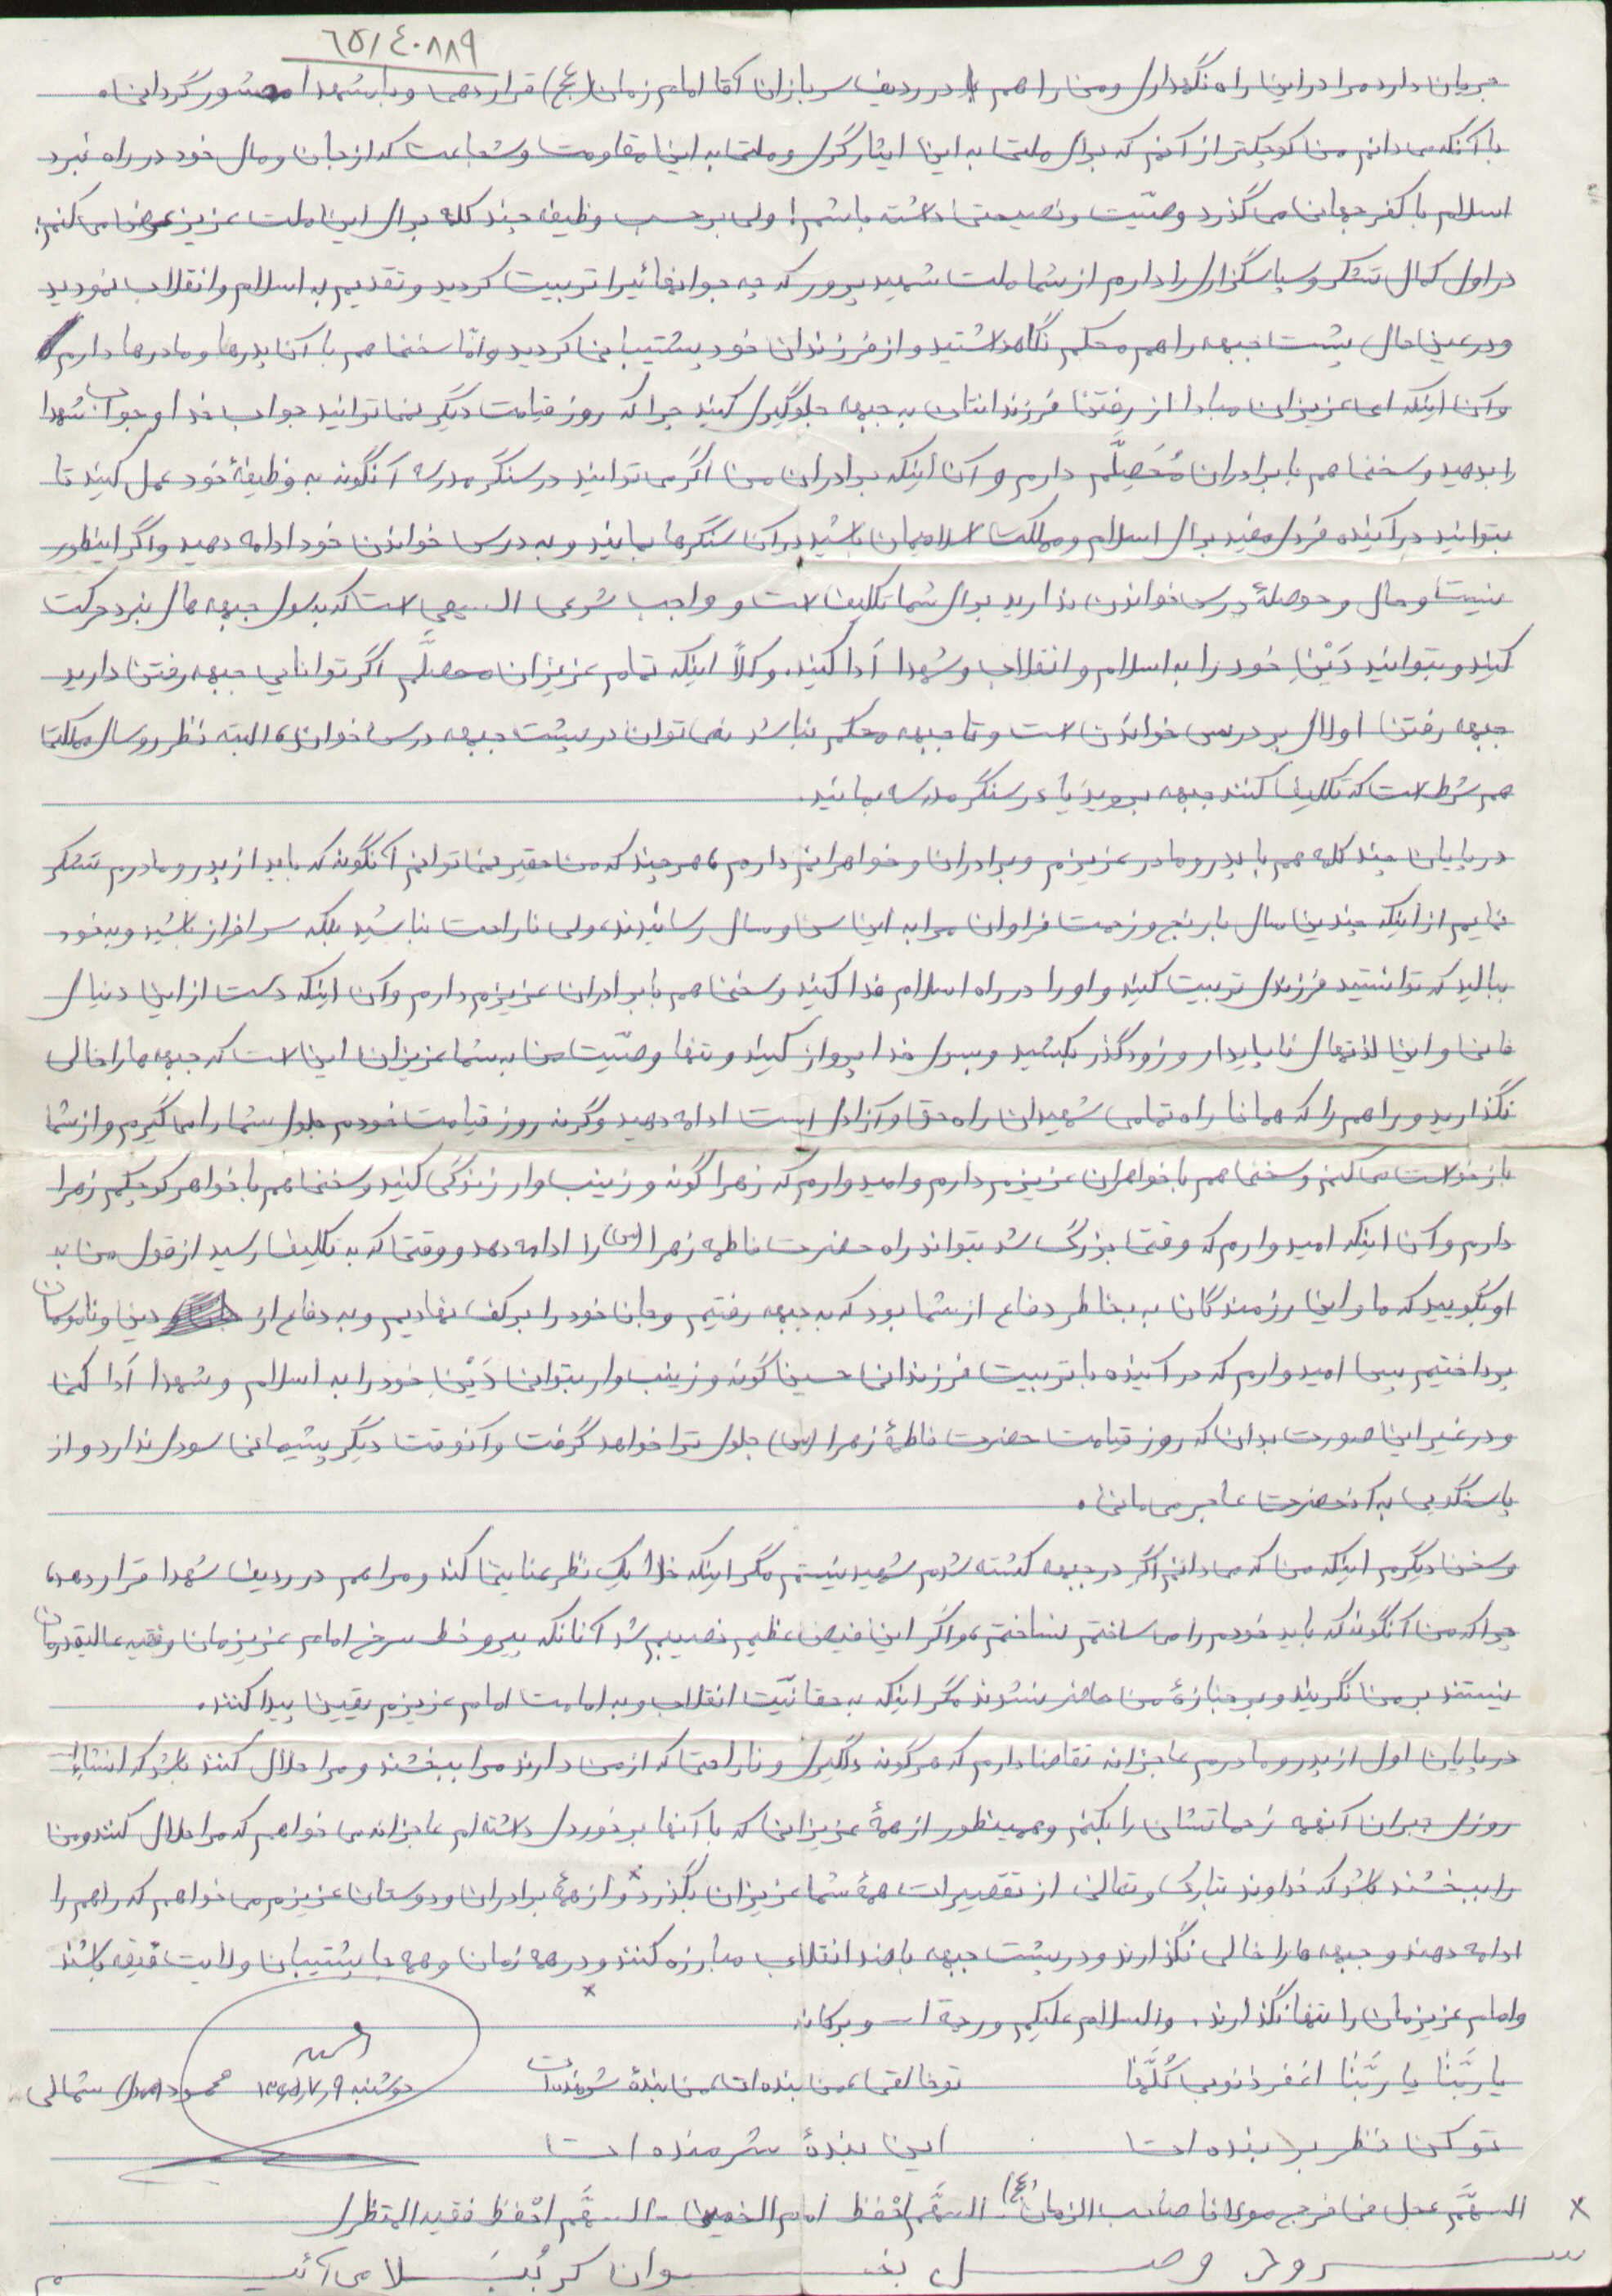 ٦٥/٤٠٨٨٩
جریان دارد مرا در این راه نگهداری و من را هم در ردیف سربازان آقا امام زمان (عج) قرار دهی و با شهدا محشور گردانی.
با آنکه می دانم من کوچکتر از آنم که برای ملتی به این ایثارگری و ملتی به این مقاومت و شجاعت که از جان و مال خود در راه نبرد
اسلام با کفر جهانی می گذرد وصیّت و نصیحتی داشته باشم! ولی بر حسب وظیفه چند کلمه برای این ملت عزیز عرض می کنم:
در اول کمال تشکر و سپاسگزاری را دارم از شما ملت شهید پرور که چه جوانهائی را تربیت کردید و تقدیم به اسلام و انقلاب نمودید
و در عین حال پشت جبهه را هم محکم نگاهداشتید و از فرزندان خود پشتیبانی کردید و امّا سخنی هم با آن پدرها و مادرها دارم
و آن اینکه ای عزیزان مبادا از رفتن فرزندانتان به جبهه جلوگیری کنید چرا که روز قیامت دیگر نمی توانید جواب خدا و جواب شهدا
را بدهید و سخنی هم با برادران مُحَصِّلَم دارم و آن اینکه برادران من اگر می توانید در سنگر مدرسه آنگونه به وظیفهٔ خود عمل کنید تا
بتوانید در آینده فردی مفید برای اسلام و مملکت اسلامیمان باشید در آن سنگرها بمانید و به درس خواندن خود ادامه دهید و اگر اینطور
نیست و حال و حوصلهٔ درس خواندن ندارید برای شما تکلیف است و واجب شرعی الهی است که بسوی جبهه های نبرد حرکت
کنید و بتوانید دَیْنِ خود را به اسلام و انقلاب و شهدا اَدا کنید. و کلاً اینکه تمام عزیزان محصلّم اگر توانایی جبهه رفتن دارید
جبهه رفتن اولای بر درس خواندن است و تا جبهه محکم نباشد نمی توان در پشت جبهه درس خواند، البته نظر روسای مملکت
هم شرط است که تکلیف کنند جبهه بروید یا در سنگر مدرسه بمانید.
در پایان چند کلمه هم با پدر و مادر عزیزم و برادران و خواهرانم دارم، هر چند که من حقیر نمی توانم آنگونه که باید از پدر و مادرم تشکر
نمایم از اینکه چندین سال با رنج و زحمت فراوان مرا به این سن و سال رسانیدند، ولی ناراحت نباشید بلکه سرافراز باشید و به خود
ببالید که توانستید فرزندی تربیت کنید و او را در راه اسلام فدا کنید و سخنی هم با برادران عزیزم دارم و آن اینکه دست از این دنیای
فانی و این لذتهای ناپایدار و زودگذر بکشید و بسوی خدا پرواز کنید و تنها وصیّت من به شما عزیزان این است که جبهه ها را خالی
نگذارید و راهم را که همانا راه تمامی شهیدان راه حق و آزادی است ادامه دهید وگرنه روز قیامت خودم جلوی شما را می گیرم و از شما
بازخواست می کنم و سخنی هم با خواهران عزیزم دارم و امیدوارم که زهرا گونه و زینب وار زندگی کنید و سخنی هم با خواهر کوچکم زهرا
دارم و آن اینکه امیدوارم که وقتی بزرگ شد بتواند راه حضرت فاطمه زهرا (س) را ادامه دهد و وقتی که به تکلیف رسید از قول من به
او بگویید که ما و این رزمندگان به بخاطر دفاع از شما بود که به جبهه رفتیم و جان خود را بر کف نهادیم و به دفاع از دین و ناموسمان
پرداختیم پس امیدوارم که در آینده با تربیت فرزندانی حسین گونه و زینب وار بتوانی دَیْنِ خود را به اسلام و شهدا اَدا کنی
و در غیر این صورت بدان که روز قیامت حضرت فاطمهٔ زهرا (س) جلوی ترا خواهد گرفت و آنوقت دیگر پشیمانی سودی ندارد و از
پاسخگویی به آنحضرت عاجز می مانی.
و سخن دیگرم اینکه من که می دانم اگر در جبهه کشته شدم شهید نیستم مگر اینکه خدا یک نظر عنایتی کند و مرا هم در ردیف شهدا قرار دهد،
چرا که من آنگونه که باید خودم را می ساختم نساختم، و اگر این فیض عظیم نصیبم شد آنانکه پیرو خط سرخ امام عزیزمان و فقیه عالیقدرمان
نیستند بر من نگریند و بر جنازهٔ من حاضر نشوند مگر اینکه به حقانیّت انقلاب و به امامت امام عزیزم یقین پیدا کنند.
در پایان اول از پدر و مادرم عاجزانه تقاضا دارم که هرگونه دلگیری و ناراحتی که از من دارند مرا ببخشند و مرا حلال کنند باشد که انشاءا...
روزی جبران آنهمه زحماتشان را بکنم و همینطور از همهٔ عزیزانی که با آنها برخوردی داشته ام عاجزانه می خواهم که مرا حلال کنند و من
را ببخشند باشد که خداوند تبارک و تعالی از تقصیرات همهٔ شما عزیزان بگذرد × و از همهٔ برادران و دوستان عزیزم می خواهم که راهم را
ادامه دهند و جبهه ها را خالی نگذارند و در پشت جبهه با ضد انقلاب مبارزه کنند و در همه زمان و همه جا پشتیبان ولایت فقیه باشند ×
و امام عزیزمان را تنها نگذارند. والسلام علیکم و رحمة ا... و برکاته
یا ربَّنا یا ربَّنا اغفر ذنوبی کُلَّها توخالقی من بنده ات من بندهٔ شرمنده ات
دوشنبه ۱۳۶۵/۷/۹ شمالی
تو کن نظر بر بنده ات این بندهٔ شرمنده ات
× اللهمَّ عجل فی فرج مولانا صاحب الزمان (عج) - اللهمَّ احْفظ امام الخمینی - اللهمَّ احْفظ فقیه المنتظری
کربُبَلا می آئیم